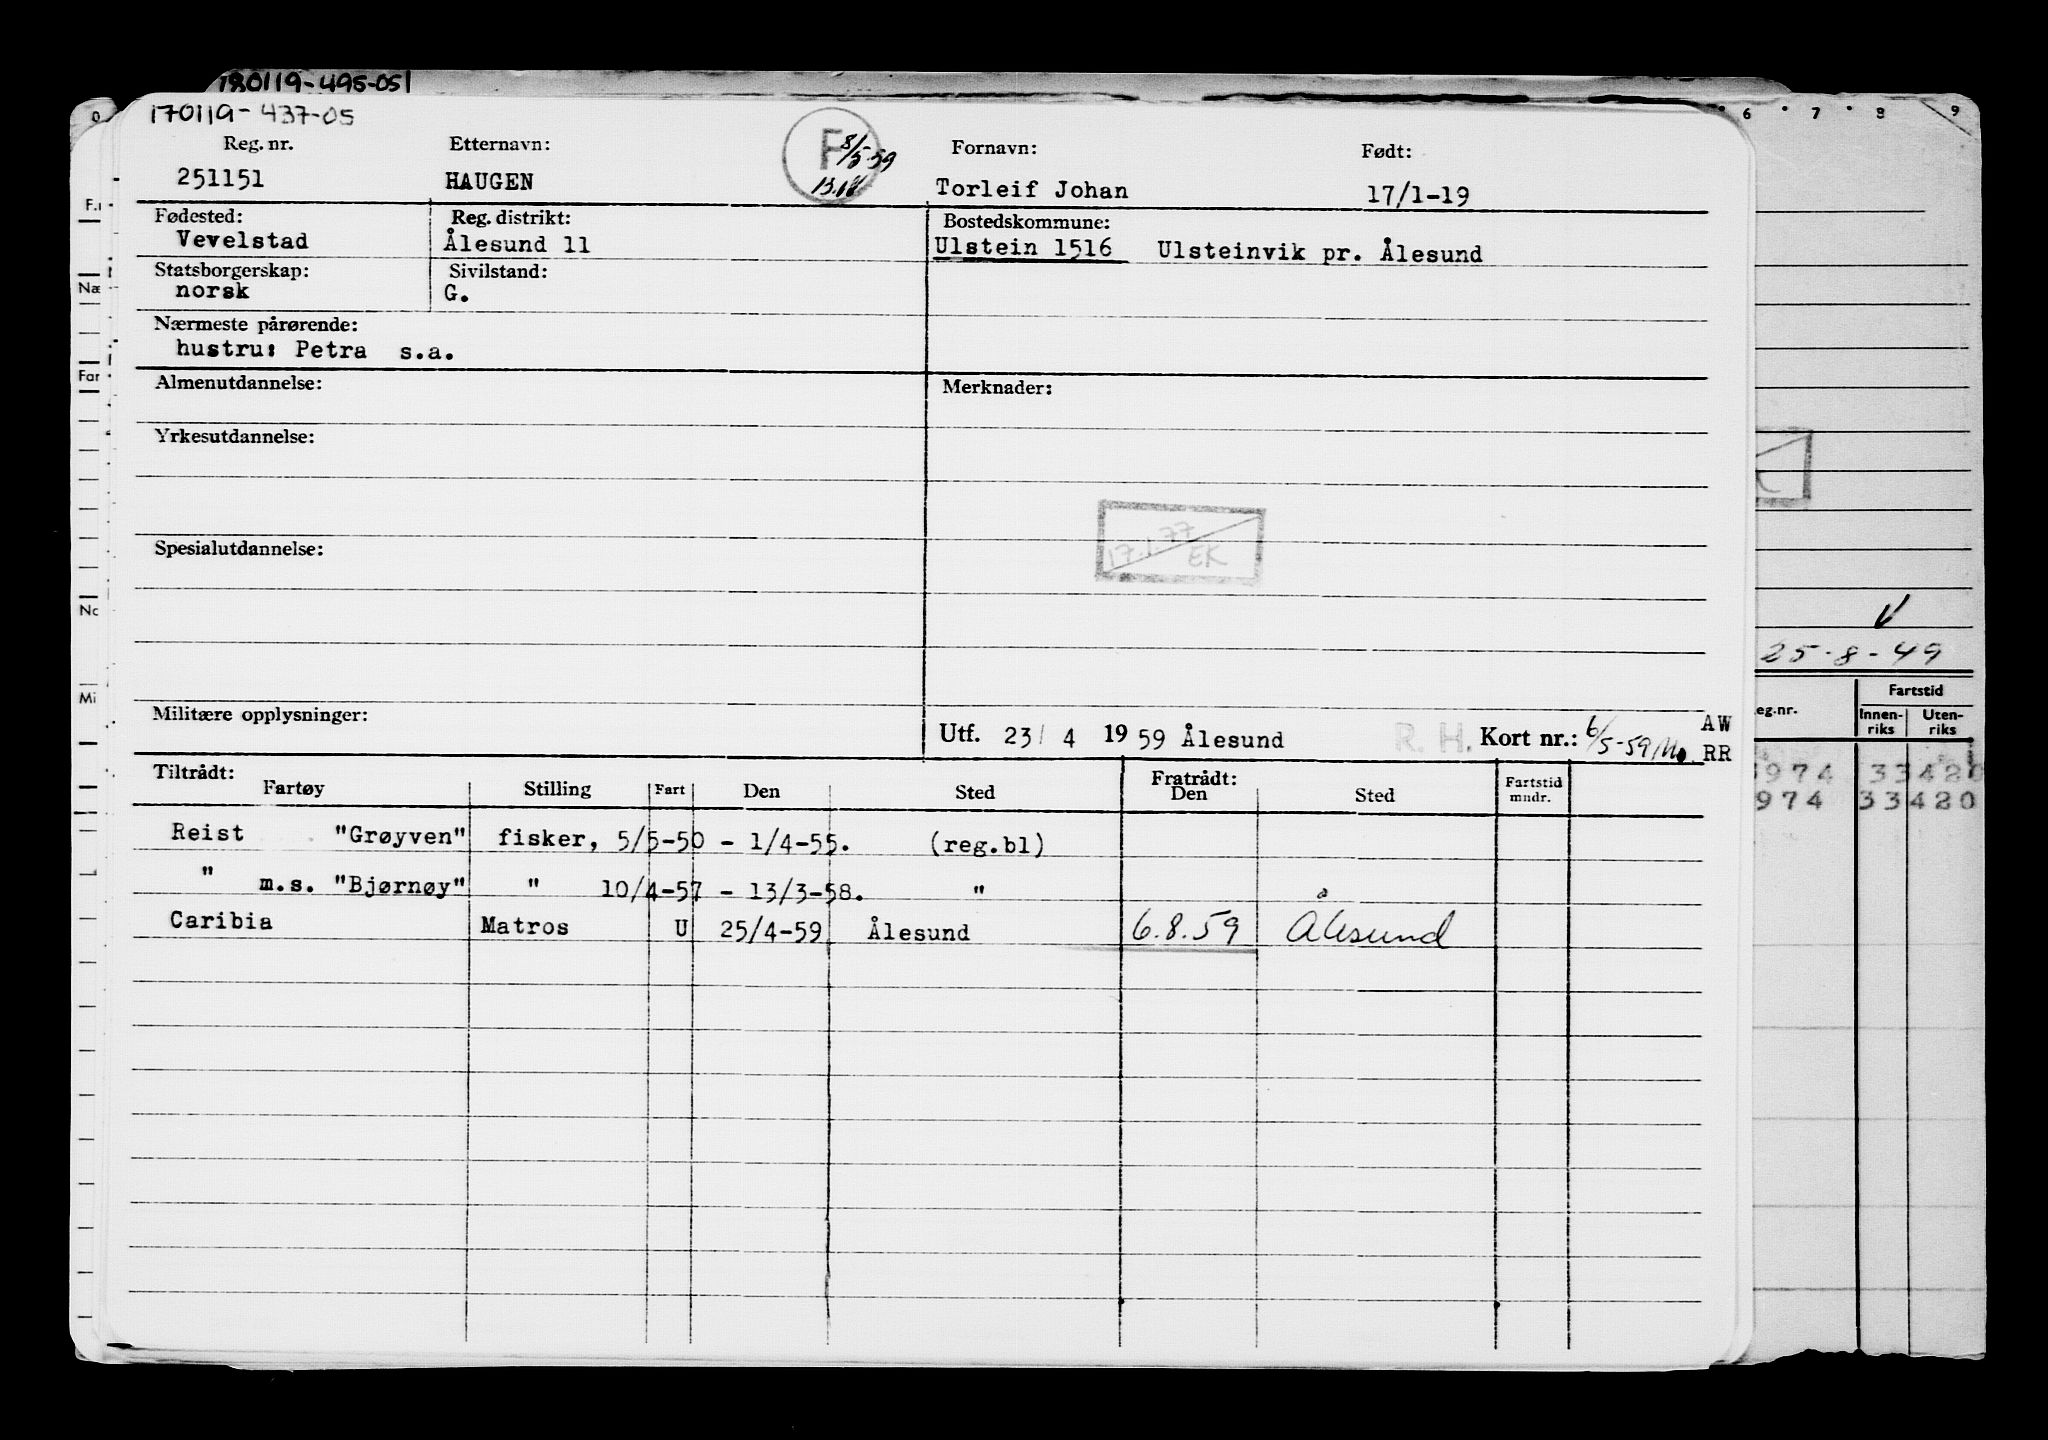 180119-495-051
170119-437-05
0 6 7 8 9
Reg. nr. Etternavn: Fornavn: Født:
251151 HAUGEN F 8/5-59 Torleif Johan 17/1-19
Fødested: Reg. distrikt: Bostedskommune:
Vevelstad Ålesund 11 Ulstein 1516 Ulsteinvik pr. Ålesund
Statsborgerskap: Sivilstand:
norsk G.
Nærmeste pårørende:
hustru: Petra s.a.
Almenutdannelse: Merknader:
Yrkesutdannelse:
17.1.77
EK
Spesialutdannelse:
25-8-49
Militære opplysninger:
Utf. 23/ 4 1959 Ålesund R. H. Kort nr.: 6/5-59 AW
RR
eg.nr. Fartstid
Innen-riks Uten-riks
974 33420
974 33420
Tiltrådt: Fratrådt:
Fartøy Stilling Fart Den Sted Den Sted Fartstid mndr.
Reist "Grøyven" fisker, 5/5-50 - 1/4-55. (reg.bl)
" m.s. "Bjørnøy" " 10/4-57 - 13/3-58. "
Caribia Matros U 25/4-59 Ålesund 6.8.59 Ålesund